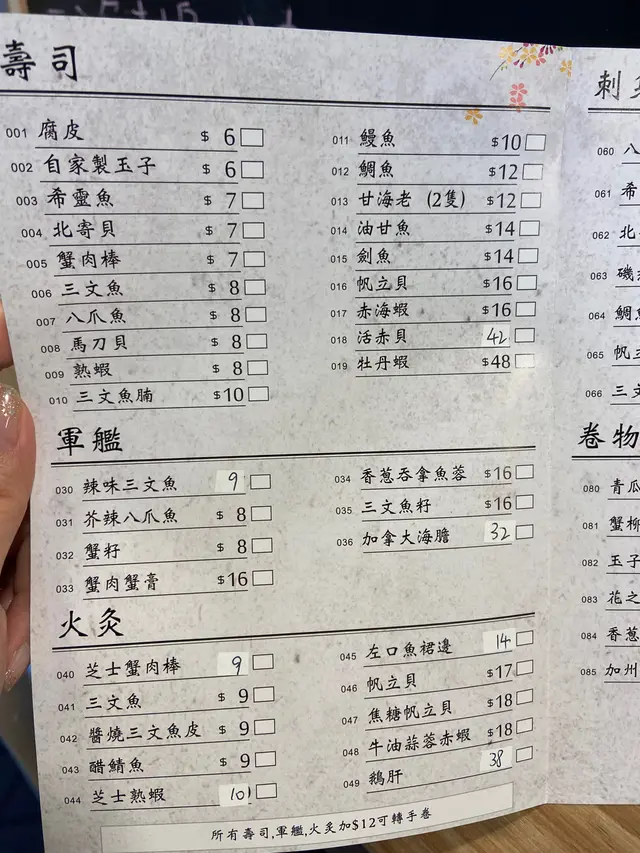 壽司
001 腐皮 $ 6
002 自家製玉子 $ 6
003 希靈魚 $ 7
004 北寄貝 $ 7
005 蟹肉棒 $ 7
006 三文魚 $ 8
007 八爪魚 $ 8
008 馬刀貝 $ 8
009 熟蝦 $ 8
010 三文魚腩 $10
011 鰻魚 $10
012 鯛魚 $12
013 甘海老 (2隻) $12
014 油甘魚 $14
015 劍魚 $14
016 帆立貝 $16
017 赤海蝦 $16
018 活赤貝 42
019 牡丹蝦 $48
軍艦
030 辣味三文魚 9
031 芥辣八爪魚 $ 8
032 蟹籽 $ 8
033 蟹肉蟹膏 $16
034 香蔥吞拿魚蓉 $16
035 三文魚籽 $16
036 加拿大海膽 32
火炙
040 芝士蟹肉棒 9
041 三文魚 $ 9
042 醬燒三文魚皮 $ 9
043 醋鯖魚 $ 9
044 芝士熟蝦 10
045 左口魚裙邊 14
046 帆立貝 $17
047 焦糖帆立貝 $18
048 牛油蒜蓉赤蝦 $18
049 鵝肝 38
所有壽司,軍艦,火炙加$12可轉手卷
刺
060 八
061 希
062 北
063 磯
064 鯛
065 帆
066 三文
卷物
080 青瓜
081 蟹柳
082 玉子
083 花之
084 香蔥
085 加州